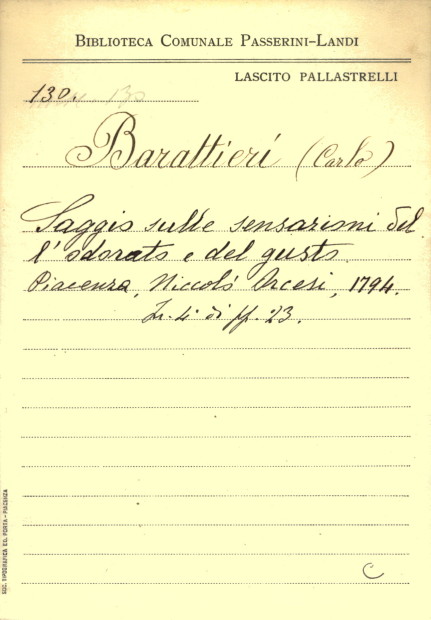 BIBLIOTECA COMUNALE PASSERINI-LANDI
LASCITO PALLASTRELLI
130. 130
Barattieri (Carlo)
Saggio sulle sensazioni del
l'odorato e del gusto
Piacenza, Niccolò Orcesi, 1794.
In. 4° di ff. 23.
C
SOC. TIPOGRAFICA ED. PORTA - PIACENZA